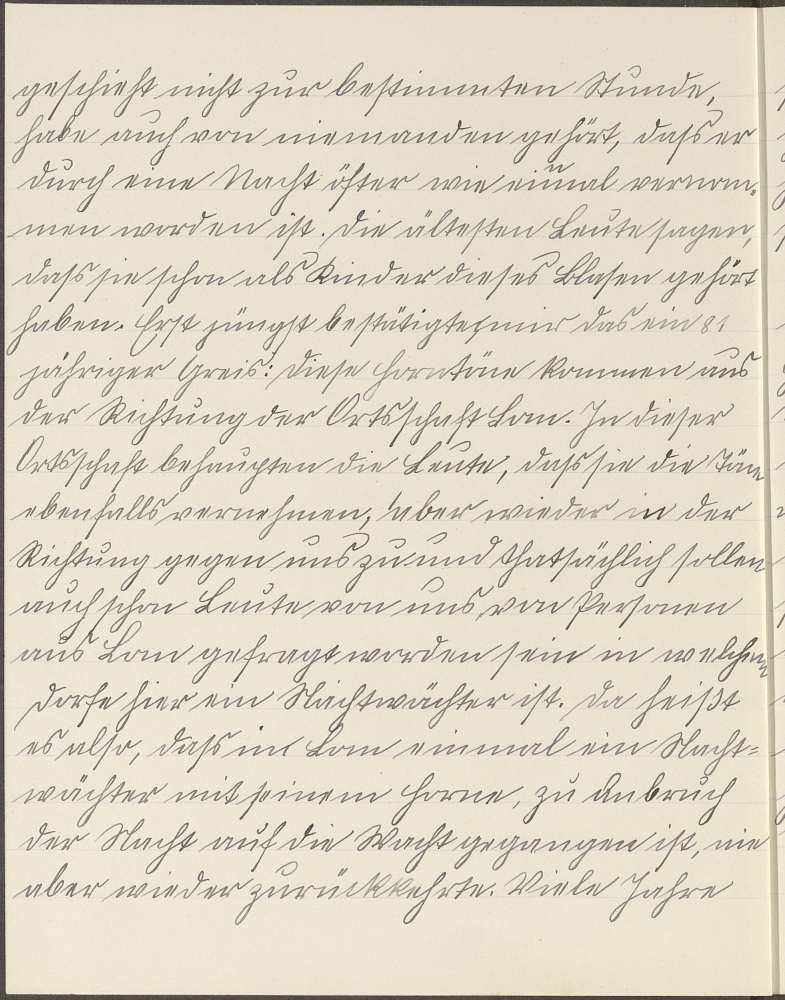 geschieht nicht zur bestimmten Stunde,
habe auch von niemanden gehört, dass er
durch eine Nacht öfter wie einmal vernom-
men worden ist. Die ältesten Leute sagen,
dass sie schon als Kinder dieses Blasen gehört
haben. Erst jüngst bestätigte mir das ein 81
jähriger Greis: Diese Horntöne kommen aus
der Richtung der Ortsschaft Lom. In dieser
Ortsschaft behaupten die Leute, dass sie die Töne
ebenfalls vernehmen, aber wieder in der
Richtung gegen uns zu und thatsächlich sollen
auch schon Leute von uns von Personen
aus Lom gefragt worden sein in welchem
Dorfe hier ein Nachtwächter ist. Da heißt
es also, dass in Lom einmal ein Nacht=
wächter mit seinem Horne, zu Anbruch
der Nacht auf die Wacht gegangen ist, nie
aber wieder zurückkehrte. Viele Jahre